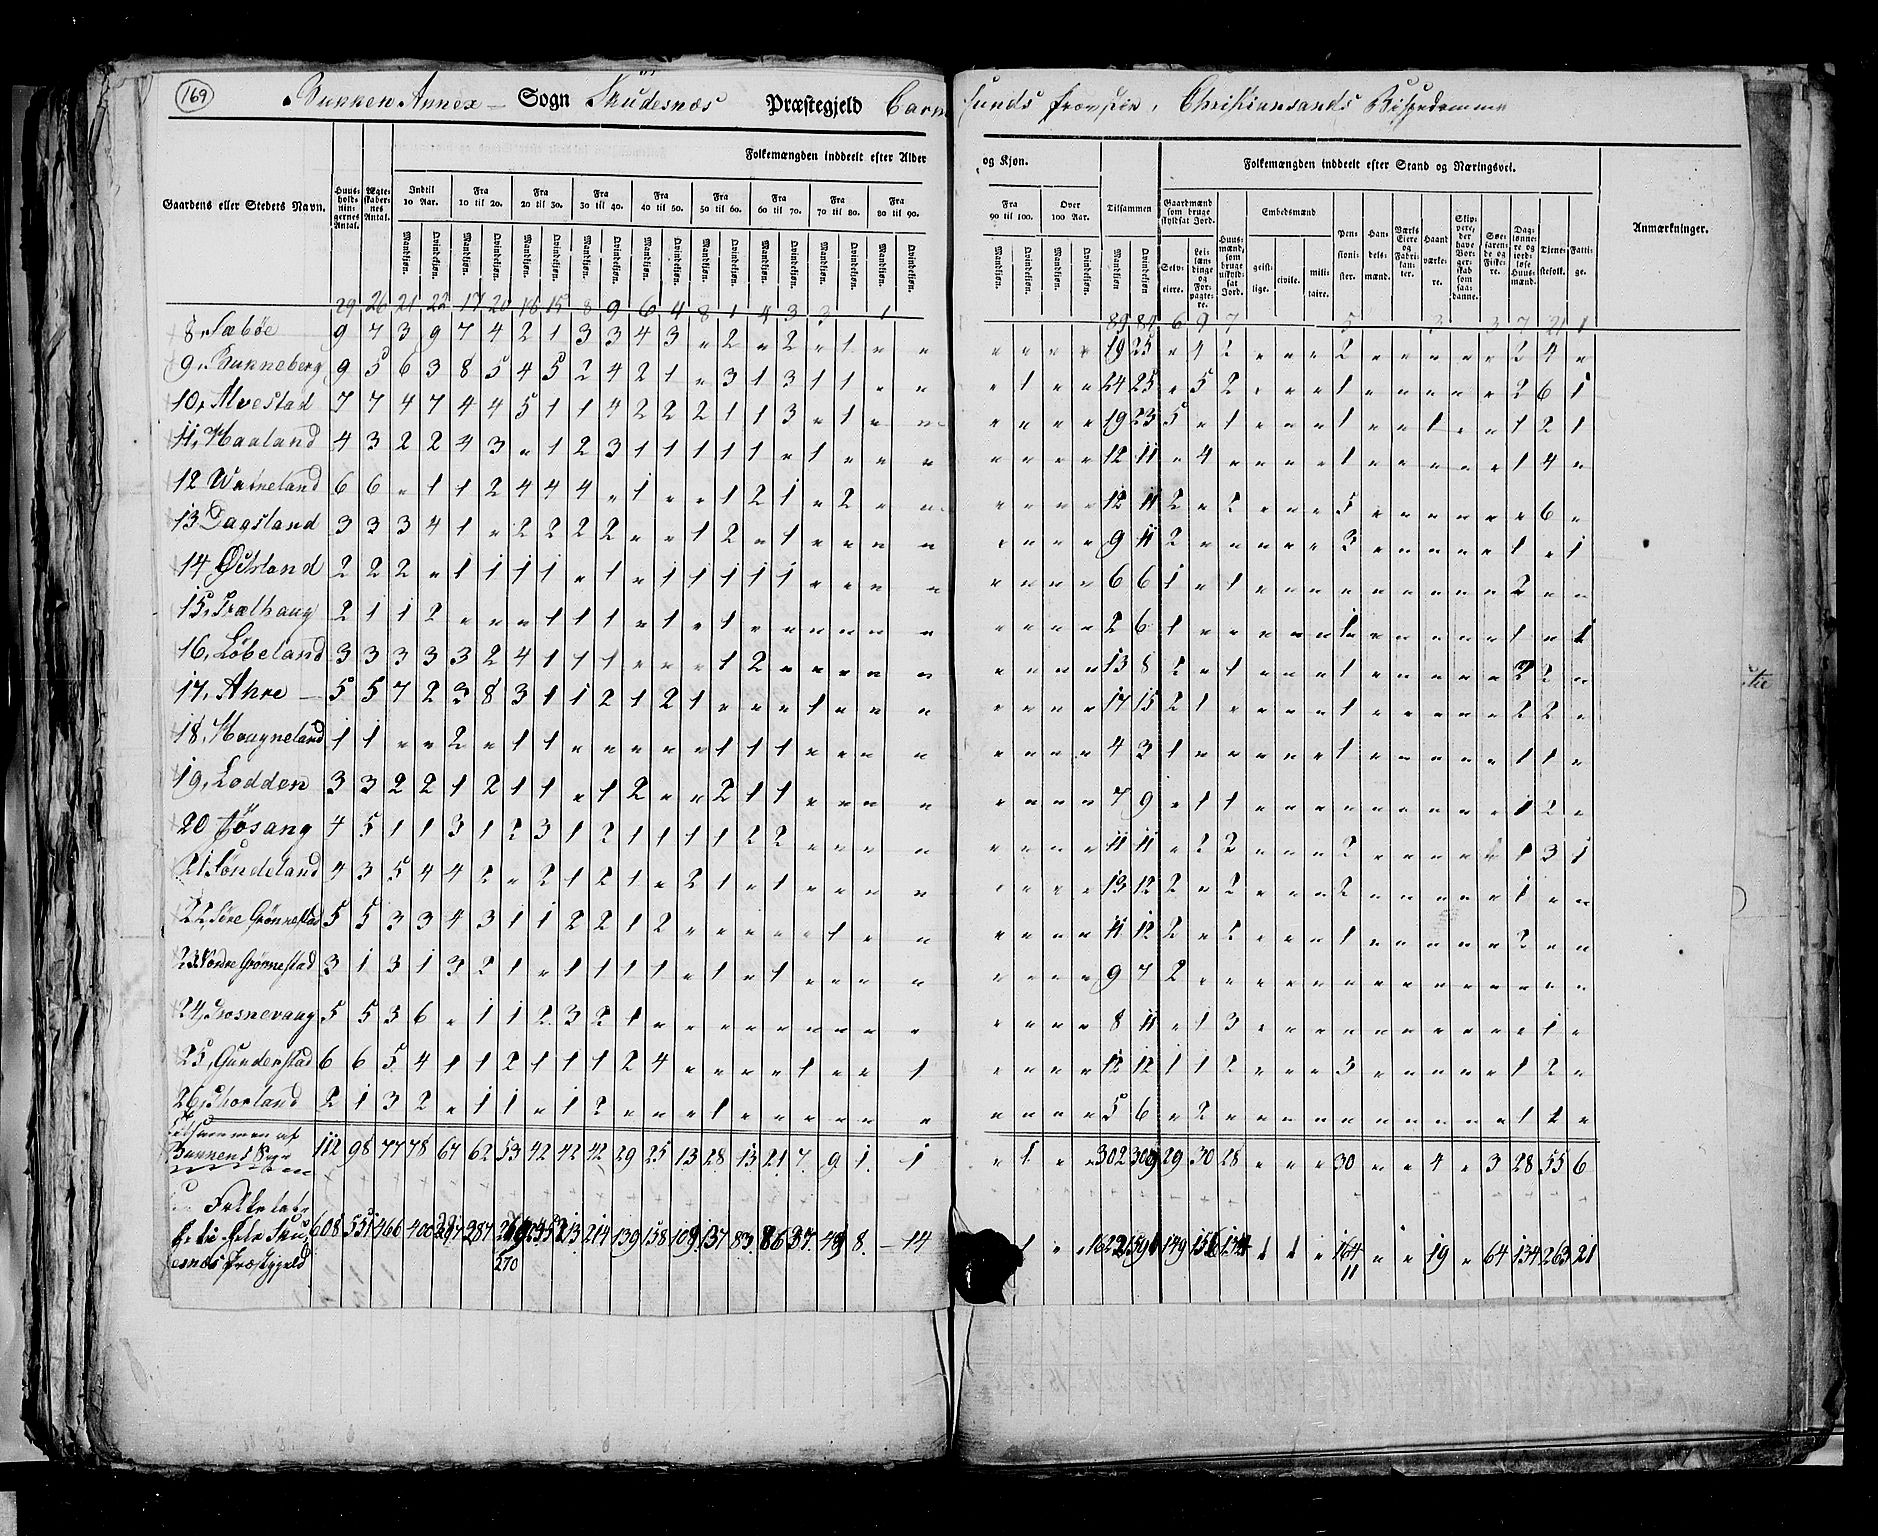 169
Bukken Annex – Sogn Skudesnæs Præstegjeld Carmsunds Provstie, Christiansands Bispedømme
Folkemængden inddeelt efter Alder og Kjøn.
Folkemængden inddeelt efter Stand og Næringsvei.
Gaardens eller Stedets Navn.
Huusholdningernes Antal.
Ægteskabernes Antal.
Indtil 10 Aar.
Fra 10 til 20.
Fra 20 til 30.
Fra 30 til 40.
Fra 40 til 50.
Fra 50 til 60.
Fra 60 til 70.
Fra 70 til 80.
Fra 80 til 90.
Fra 90 til 100.
Over 100 Aar.
Tilsammen
Mandkjøn. Qvindekjøn.
Gaardmænd som bruge skyldsat Jord.
Selveiere.
Leilændinge og Forpagtere.
Huusmænd, som bruge uskyldsat Jord.
Embedsmænd
geistlige. civile. militaire.
Pensionister.
Handelsmænd.
Værks Eiere og Fabrikanter.
Haandværkere.
Skippere, der have Borgerskab som saadanne.
Søefarende og Fiskere.
Daglønnere og jordløse Huusmænd.
Tjenestefolk.
Fattige.
Anmærkninger.
29 26 21 22 17 20 16 15 8 9 6 4 8 1 4 3 3 1 89 84 6 9 7 5 3 3 7 21 1
8, Sæbøe 9 7 3 9 7 4 2 1 3 3 4 3 „ 2 „ 2 „ 1 „ „ „ „ „ „ 19 25 „ 4 2 „ „ „ 2 „ „ „ „ „ 2 4 „
9, Bukneberg 9 5 6 3 8 5 4 5 2 4 2 1 „ 3 1 3 1 1 „ „ „ 1 „ „ 24 25 „ 5 2 „ „ „ 1 „ „ „ „ „ 2 6 1
10, Alvestad 7 7 4 7 4 4 5 1 1 4 2 2 2 1 1 3 „ 1 „ „ „ „ „ „ 19 23 5 „ 1 „ „ „ 1 „ „ 1 „ „ 1 2 1
11, Haaland 4 3 2 2 4 3 „ 1 2 3 1 1 1 1 1 „ 1 „ „ „ „ „ „ „ 12 11 „ 4 „ „ „ „ 1 „ „ „ „ „ 1 4 „
12 Watneland 6 6 „ 1 1 2 4 4 4 „ 1 „ „ 1 2 1 „ 2 „ „ „ „ „ „ 12 11 2 „ 2 „ „ „ 5 „ „ „ „ „ „ 6 „
13 Dagsland 3 3 3 4 1 „ 2 2 2 2 „ „ 1 2 „ 1 „ „ „ „ „ „ „ „ 9 11 2 „ „ „ „ „ 3 „ „ „ „ „ 1 „ 1
14 Østsland 2 2 2 „ 1 1 1 1 „ 1 „ 1 1 1 1 1 „ „ „ „ „ „ „ „ 6 6 1 „ 1 „ „ „ „ „ „ „ „ „ 2 „ „
15, Trælhaug 2 1 1 2 „ „ „ 1 1 1 „ 1 „ 1 „ „ „ „ „ „ „ „ „ „ 2 6 1 „ „ „ „ „ 1 „ „ „ „ „ 1 „ 1
16, Løbeland 3 3 3 3 3 2 4 1 1 1 „ „ „ 1 2 „ „ „ „ „ „ „ „ „ 13 8 2 „ 1 „ „ „ 1 „ „ „ „ „ 2 2 „
17, Ahre 5 5 7 2 3 8 3 1 1 2 1 2 1 „ „ „ 1 „ „ „ „ „ „ „ 17 15 2 1 „ „ „ „ 1 „ „ „ „ „ 2 2 „
18, Kragneland 1 1 „ „ 2 „ 1 1 „ „ „ „ „ 1 1 1 „ „ „ „ „ „ „ „ 4 3 1 „ „ „ „ „ 1 „ „ „ „ „ 1 1 „
19, Lodden 3 3 2 2 1 2 1 1 „ 1 2 „ „ 2 1 1 „ „ „ „ „ „ „ „ 7 9 „ 1 1 „ „ „ „ „ „ „ „ „ 1 2 „
20 Jøsang 4 5 1 1 3 1 2 3 1 2 1 1 1 1 2 2 „ „ „ „ „ „ „ „ 11 11 „ 2 2 „ „ „ 2 „ „ „ „ „ 1 3 1
21 Søndeland 4 3 5 4 4 2 „ 2 1 2 1 „ 2 1 „ 1 „ „ „ „ „ „ „ „ 13 12 2 „ 2 „ „ „ 2 „ „ „ „ „ 1 „ „
22, Søre Grønnestad 5 5 3 3 4 3 1 1 2 2 1 2 „ „ „ „ „ 1 „ „ „ „ „ „ 11 12 2 „ 2 „ „ „ 1 „ „ „ „ „ 2 „ „
23 Nordre Grønnestad 3 1 3 1 3 2 1 „ 1 1 1 1 „ 1 „ 1 „ „ „ „ „ „ „ „ 9 7 2 „ „ „ „ „ „ „ „ „ „ „ „ „ „
24, Krosnevaag 5 5 3 6 „ 1 1 2 3 2 1 „ „ „ „ „ „ „ „ „ „ „ „ „ 8 11 „ 1 3 „ „ „ „ „ „ „ „ „ „ 1 „
25, Gunderstad 6 6 5 4 1 1 2 1 1 1 2 4 „ „ „ „ 1 „ „ 1 „ „ „ „ 12 12 1 1 2 „ „ „ 3 „ „ „ „ „ 1 2 „
26, Thorland 2 1 3 2 „ 1 1 „ 1 2 „ „ „ 1 „ „ „ „ „ „ „ „ „ „ 5 6 „ 2 „ „ „ „ „ „ „ „ „ „ 1 1 „
Tilsammen af Bukkens Sogn 112 98 77 78 64 62 53 42 42 42 29 25 13 28 13 21 7 9 1 1 „ 1 „ „ 302 309 29 30 28 „ „ „ 30 „ „ 4 „ 3 28 55 6
Folketal i hele Skudesnæs Præstegjeld 608 551 466 400 287 213 214 139 158 109 137 83 86 37 48 8 14 1 „ „ 149 134 1 1 „ 164 „ „ 19 „ 64 134 263 21
270 11